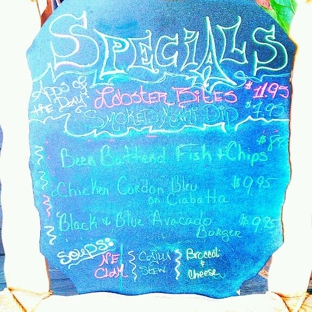 SPECIALS
Apps of
the Day
LOBSTER BITES $11.95
SMOKED DIP $7.95
Beer Batterd Fish & Chips
Chicken Cordon Bleu $9.95
on Ciabatta
Black & Blue Avocado $9.95
Burger
Soups:
NE
Clam
Stew
Broccoli
&
Cheese